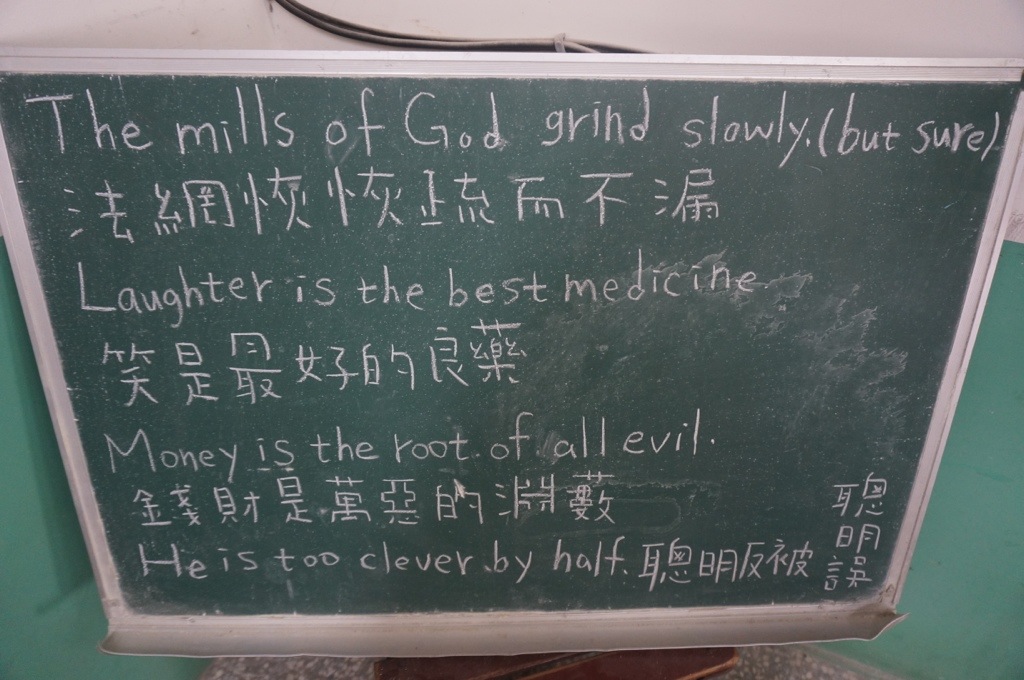 The mills of God grind slowly.(but sure)
法網恢恢疏而不漏
Laughter is the best medicine.
笑是最好的良藥
Money is the root of all evil.
金錢財是萬惡的淵藪
He is too clever by half. 聰明反被
聰
明
誤